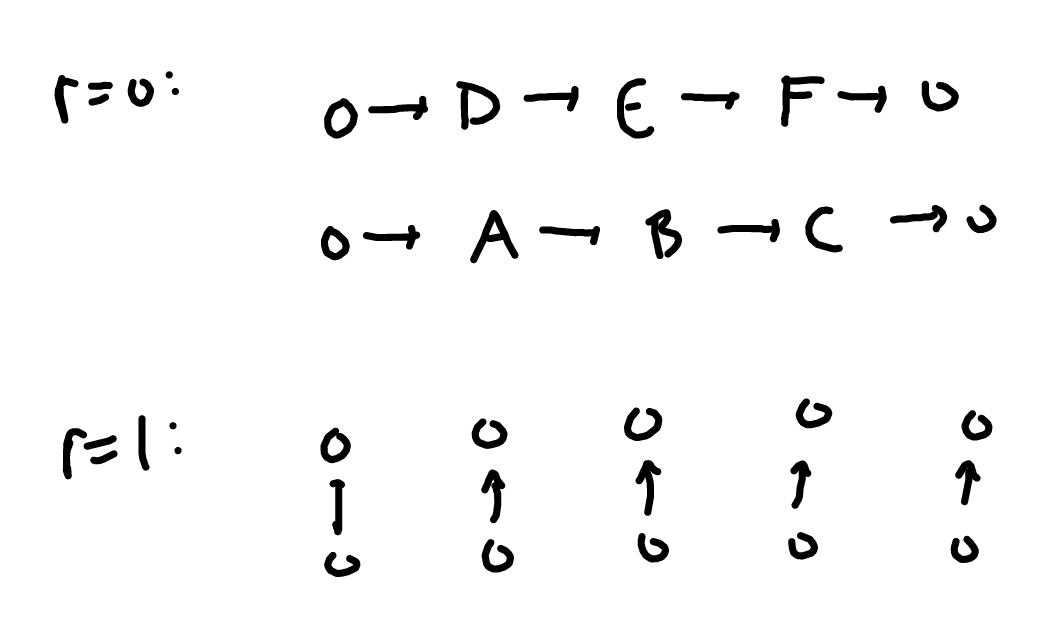 r=0: 0 → D → E → F → 0
0 → A → B → C → 0
r=1: 0 0 0 0 0
↑ ↑ ↑ ↑ ↑
0 0 0 0 0